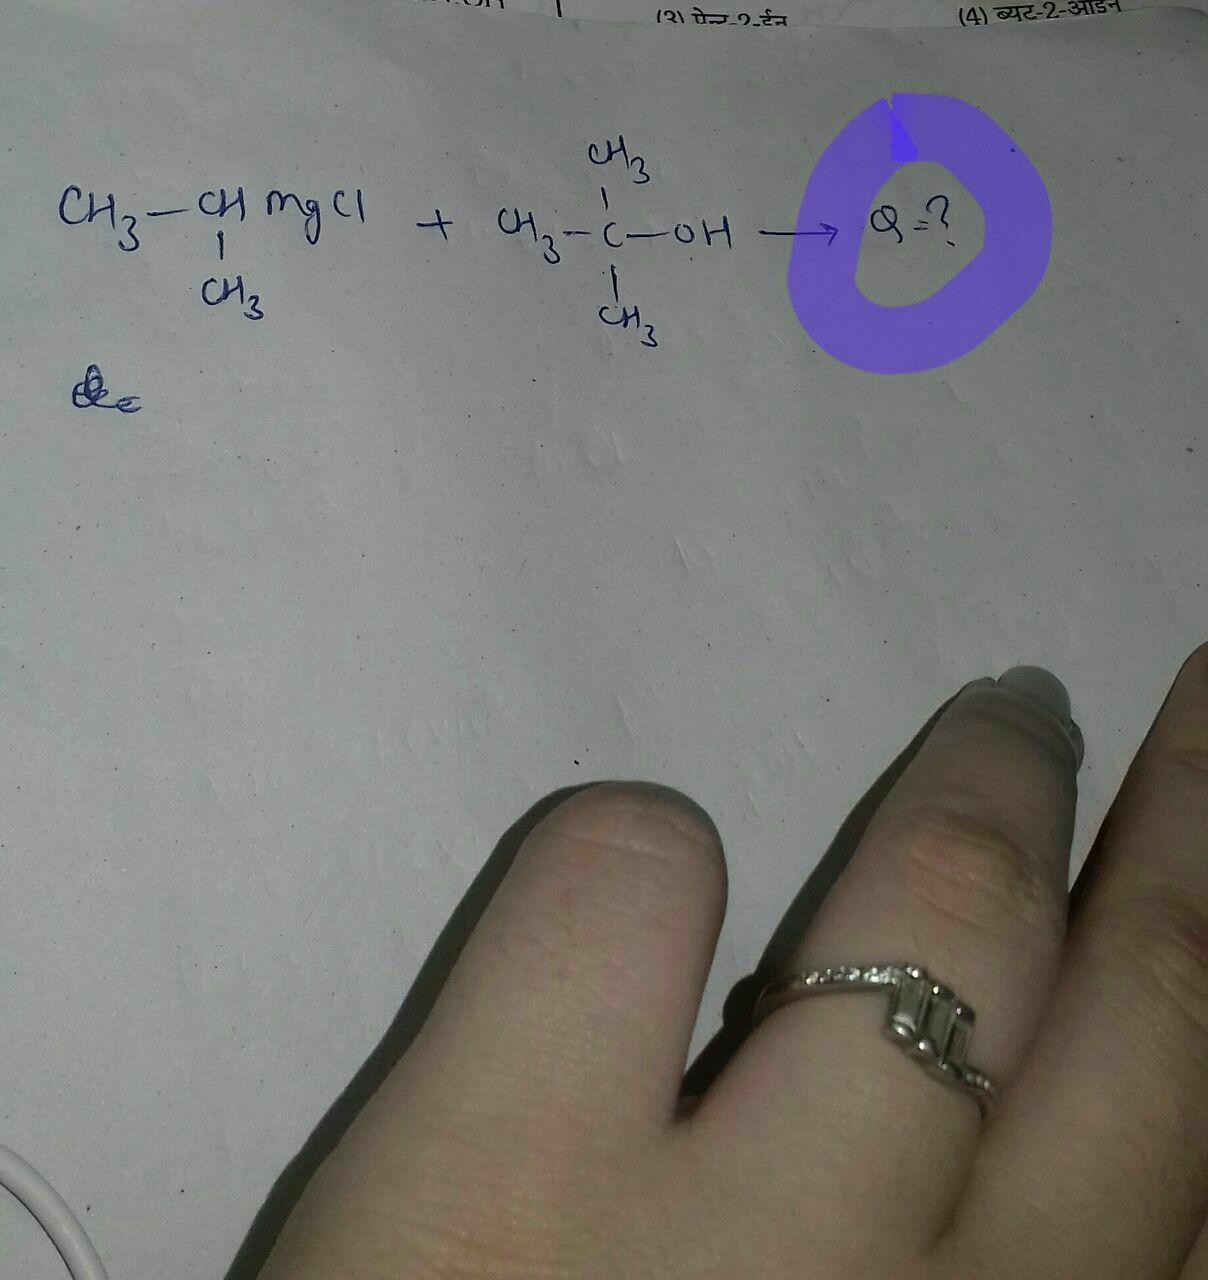 (3) पेन्ट-2-ईन (4) ब्यूट-2-आइन
CH3
CH3 — CH MgCl + CH3 — C — OH → Q = ?
CH3 CH3